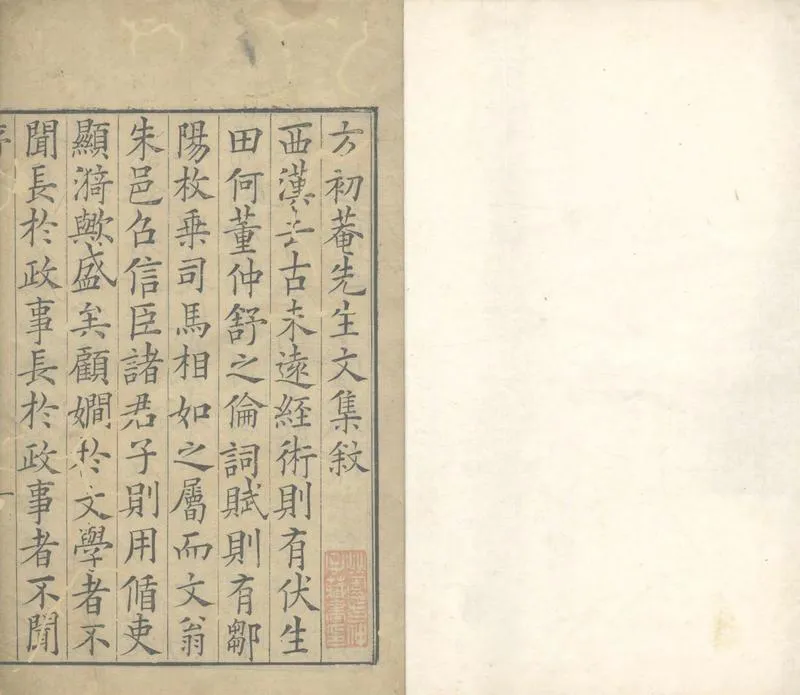 方初菴先生文集敘
西漢去古未遠經術則有伏生
田何董仲舒之倫詞賦則有鄒
陽枚乗司馬相如之屬而文翁
朱邑召信臣諸君子則用循吏
顯漪歟盛矣顧嫺於文學者不
聞長於政事長於政事者不聞
序
一